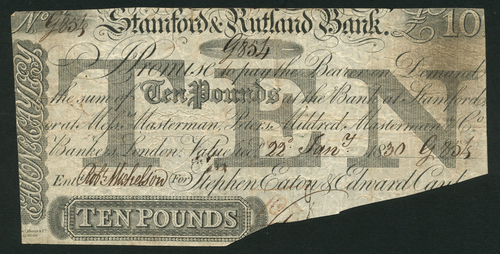 No 9854 Stamford & Rutland Bank. £10
9854
I Promise to pay the Bearer on Demand
the sum of Ten Pounds at the Bank at Stamford
or at Messrs Masterman, Peters, Mildred, Masterman & Co
Bankers London. Value recd 22 Jany 1830 9854
Entd Robt Michelson For Stephen Eaton & Edward
TEN
TEN POUNDS